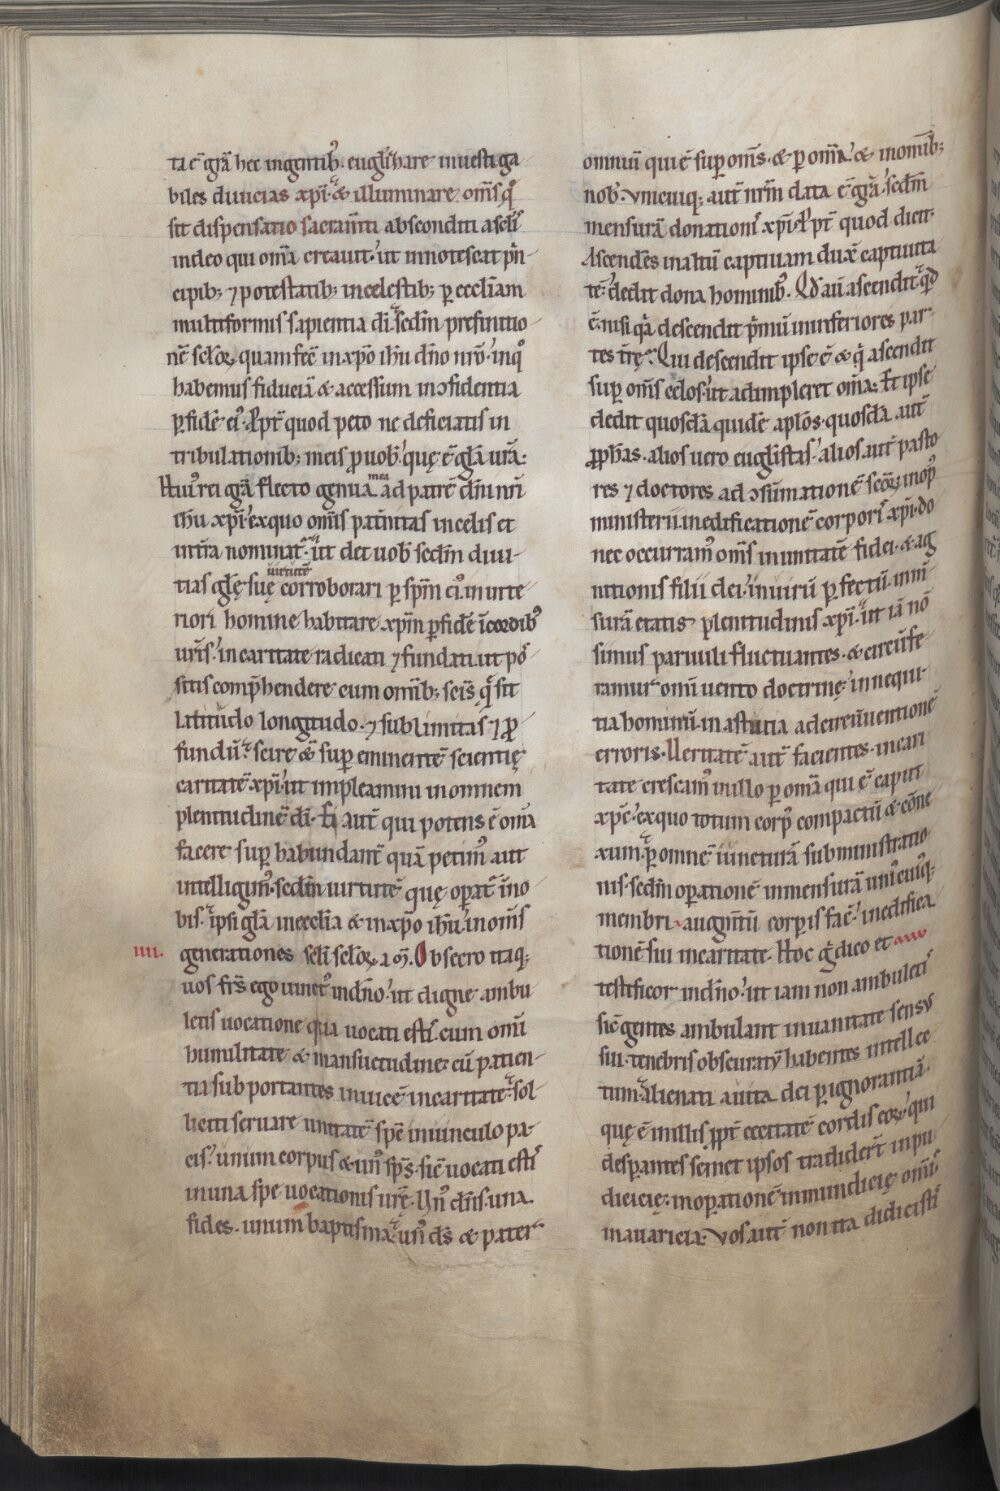 ta ē grā hec ingentib᷒. euglizare inuestiga
biles diuicias xp̄i. & illuminare om̄s q̄
sit dispensatio sacram̄ti absconditi a sclīs
in deo qui om̄ia creauit. ut innotescat p̄n
cipib; ⁊ potestatib; in celestib; per ecclīam
multiformis sapientia dī. scdm̄ prefinitio
nē sclōꝝ quam fec̄ in xp̄o ih̄u dn̄o nr̄o. in q᷒
habemus fiduciā & accessum in ↄfidentia
ꝑ fidē ei᷒. Ꝓpt̄ quod peto ne deficiatis in
tribulationib; meis ꝓ uob᷒ quę ē glā urā.
Hui᷒ rei grā flecto genua mea ad patrē dn̄i nr̄i
ih̄u xp̄i. ex quo om̄is pat̄nitas in celis et
in t̄ra nominat᷒. ut det uob᷒ scdm̄ diui
tias glę suę uirtutē corroborari ꝑ sp̄m ei᷒. in inte
riori homine habitare xp̄m ꝑ fidē ī cordib᷒
ur̄is. in caritate radicati ⁊ fundati. ut pos
sitis comp̄hendere cum om̄ib; sc̄is. q̄ sit
latitudo longitudo. ⁊ sublimitas ⁊ ꝓ
fundū. scire & super eminentē scientię
caritatē xp̄i. ut impleamini in omnem
plenitudinē dī. Ei aut̄ qui potens ē om̄ia
facere super habundant̄ quā petim᷒ aut
intelligim᷒. scdm̄ uirtutē quę operat᷒ in no
bis. ipsi glā in ecclīa & in xp̄o ih̄u. in om̄s
iiii. generationes sclī sclōꝝ am̄. Obsecro itaq;
uos fr̄s ego uinct᷒ in dn̄o. ut digne ambu
letis uocatione qua uocati estis. cum om̄i
humilitate & mansuetudine. cū patien
tia subportantes inuicē in caritate. sol
liciti seruare unitatē sp̄c in uinculo pa
cis. unum corpus & un᷒ sp̄s. sic̄ uocati estis
in una spe uocationis urę̄. Un᷒ dn̄s. una
fides. unum baptisma. un᷒ ds̄ & pater
omniū qui ē super om̄s. & per om̄ia. & in om̄ib;
nob᷒. Vnicuiq; aut̄ nr̄m data ē grā. scdm̄
mensurā donationis xp̄i. Ꝓpt̄ quod dicit.
Ascendēs in altū captiuam dux̄ captiuita
tē. dedit dona hominib᷒. Qd̄ aū ascendit. qd̄
ē. nisi q̄a descendit p̄mū in inferiores par
tes t̄rę. Qui descendit ipse ē & q̄ ascendit
super om̄s cęlos. ut adimpleret om̄ia. Et ipse
dedit quosdā quidē aplōs. quosdā aut̄
ꝓph̄as. alios uero euglistas. alios aut̄ pasto
res ⁊ doctores ad ↄsūmationē scōꝝ in op᷒
ministerii. in edificationē corporis xp̄i. do
nec occurram᷒ om̄s in unitatē fidei. & ag
nitionis filii dei. in uirū ꝑfectū. in m̄
surā etatis plenitudinis xp̄i. ut iā nō
simus paruuli fluctuantes. & circūfe
ramur omi uento doctrinę. in nequi
tia hominū. in astutia ad circūuentionē
erroris. Ueritatē aut̄ facientes. in cari
tate crescam᷒ in illo per om̄ia qui ē caput
xp̄c. ex quo totum corp᷒ compactū & cōne
xum. per omnē iuncturā subministratio
nis. scdm̄ operationē in mensurā uni᷒cuiq;
membri. augm̄tū corporis fac̄. in edifica
tionē sui in caritate. Hoc g̊ dico et
testificor in dn̄o. ut iam non ambuletis
sic̄ gentes ambulant in uanitate sensus
sui. tenebris obscuratū habentes intellec
tum. alienati a uita dei per ignorantiā.
quę ē in illis ꝓpt̄ cecitatē cordis eoꝝ. qui
desperantes semet ipsos tradider̄t inpu
dicicię. in operationē inmundicię omis
in auaricia. Vos aut̄ non ita didicistis